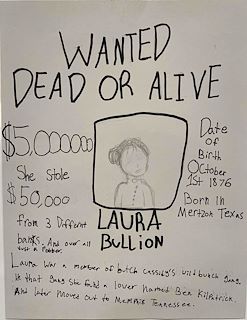 WANTED
DEAD OR ALIVE
$5,000000
She Stole
$50,000
from 3 Different
banks. And over all
Just a Robber.
Date
of
Birth
October
1st 1876
Born in
Mertzon Texas
LAURA
BULLION
Laura Was a member of butch Cassidy's wild bunch gang.
In that Gang she found a lover Named Ben Kilpatrick.
And later Moved out to Memphis Tennessee.